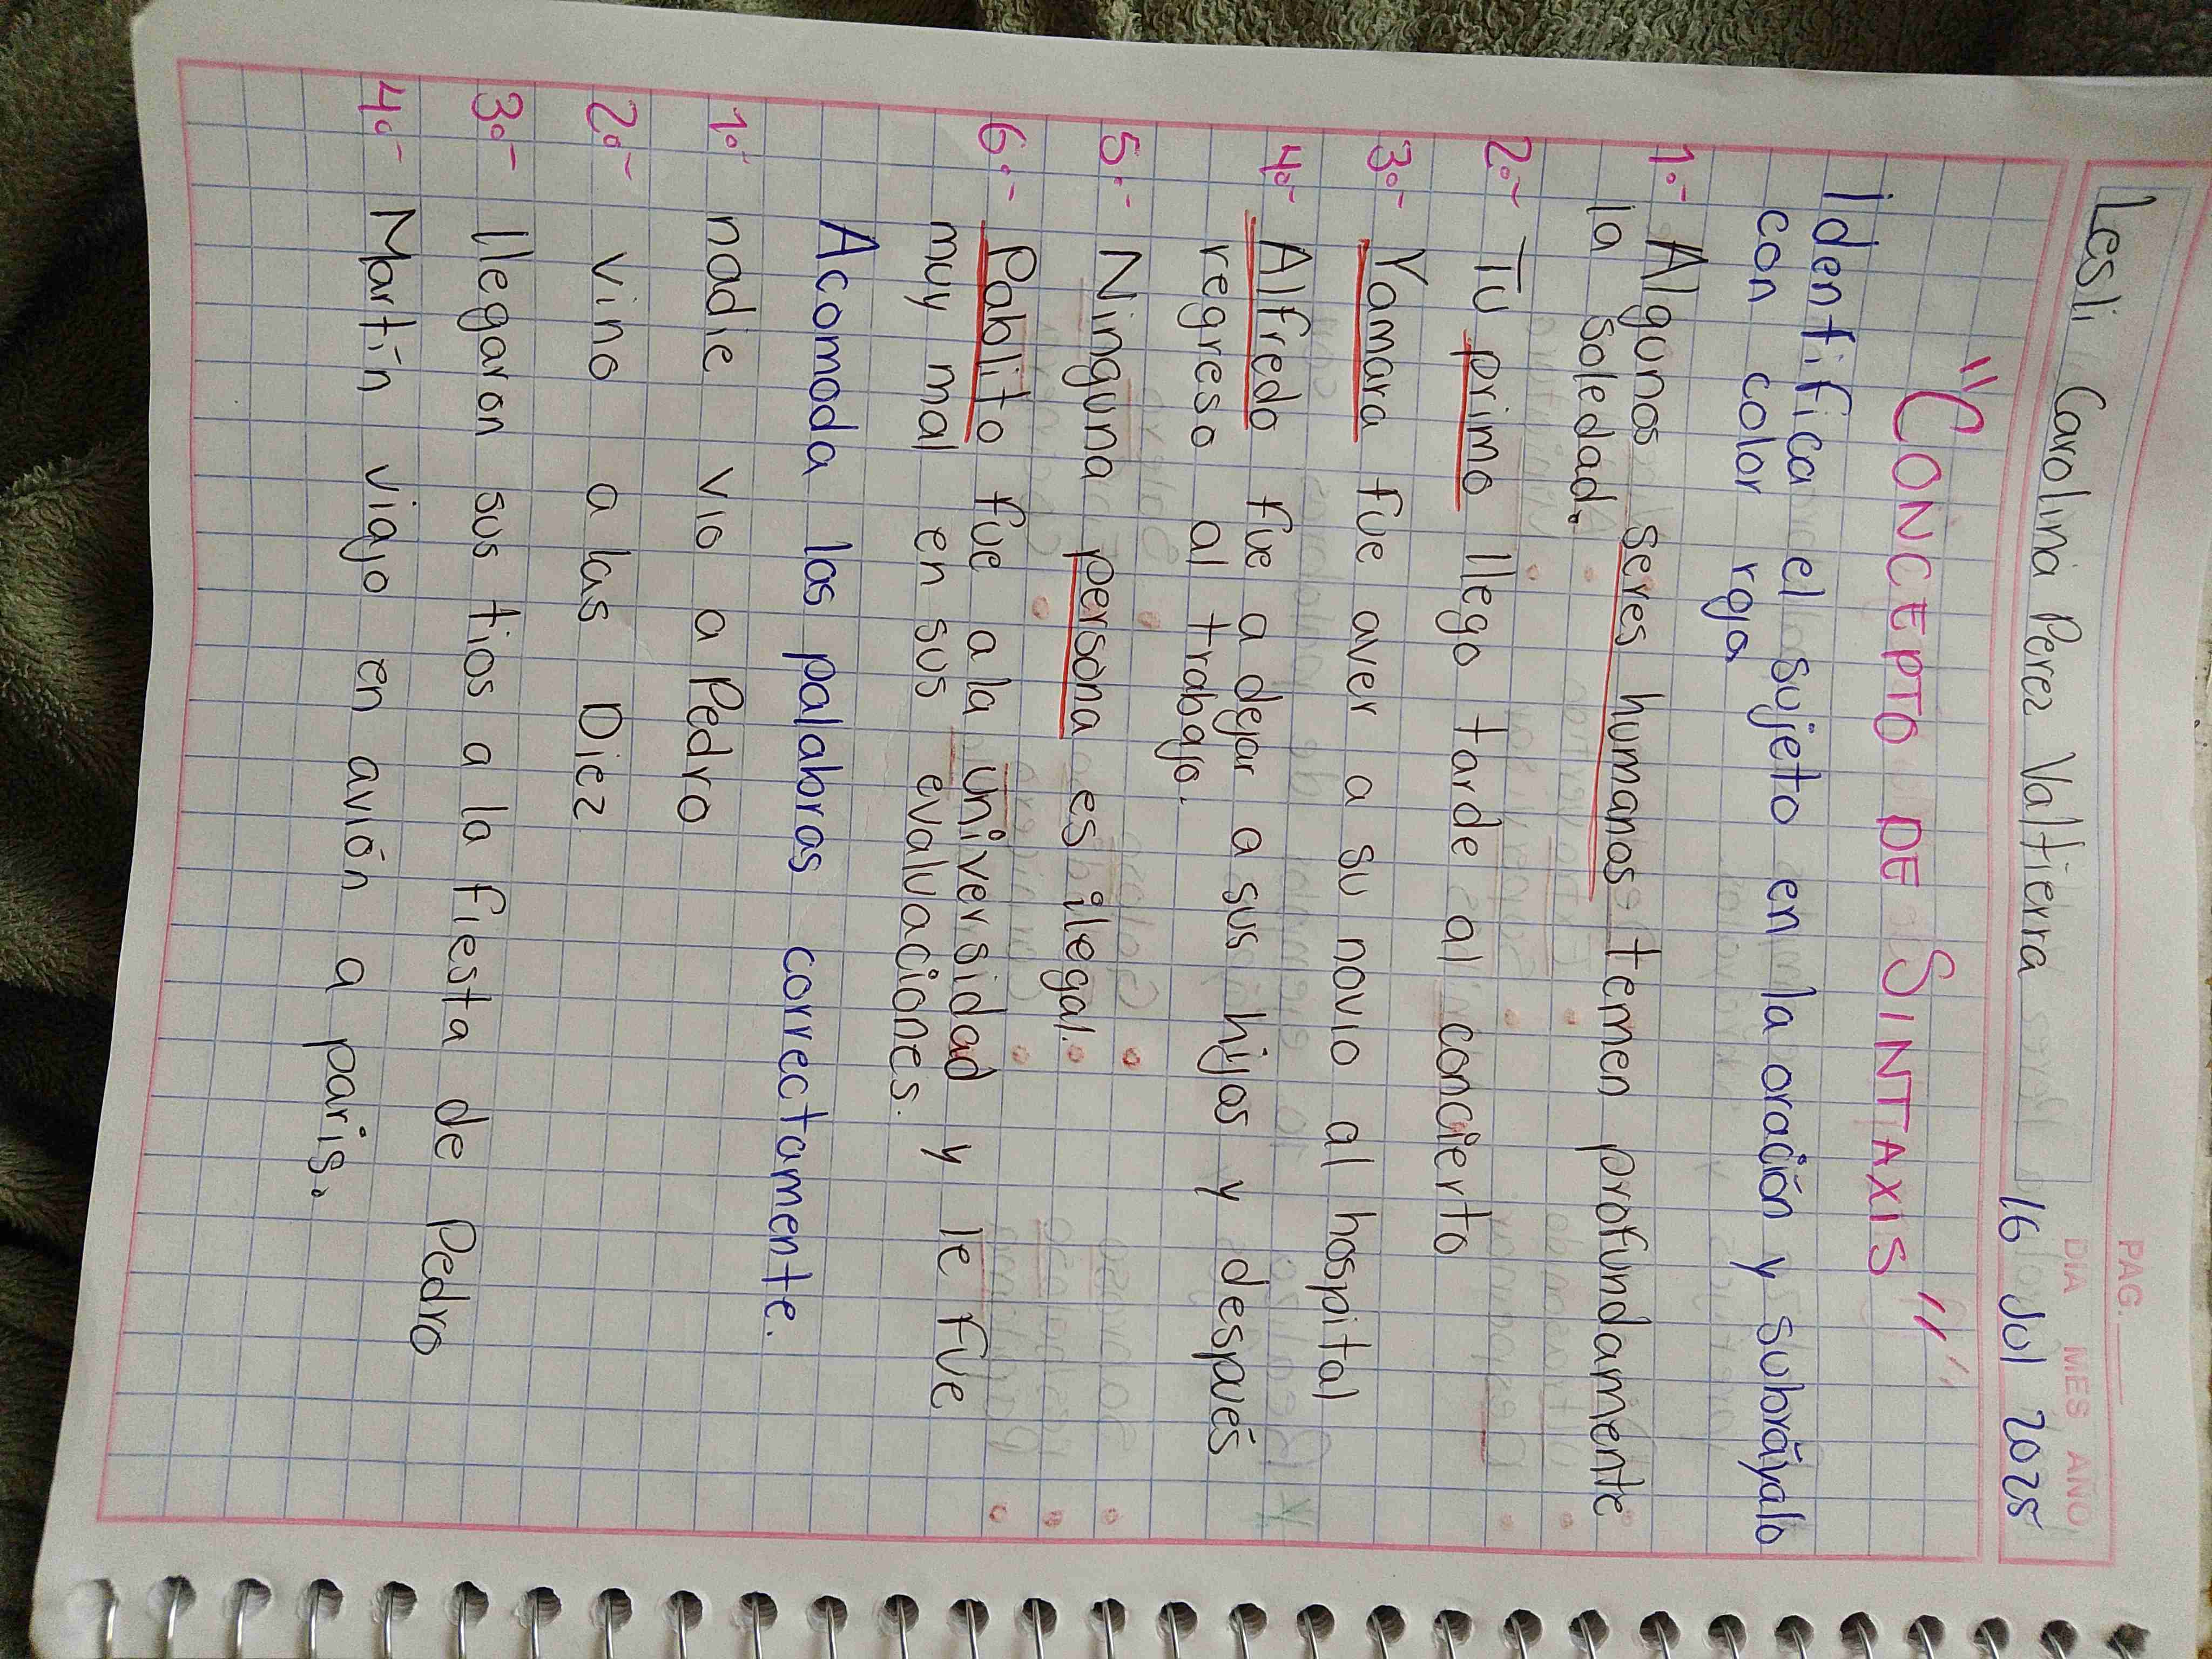 PAG.
DIA MES AÑO
Lesli Carolina Perez Valtierra 16 Jul 2025
"CONCEPTO DE SINTAXIS"
Identifica el sujeto en la oración y subráyalo
con color rojo
1.- Algunos seres humanos temen profundamente
la soledad.
2.- Tu primo llego tarde al concierto
3.- Yamara fue aver a su novio al hospital
4.- Alfredo fue a dejar a sus hijos y después
regreso al trabajo.
5.- Ninguna persona es ilegal.
6.- Pablito fue a la universidad y le fue
muy mal en sus evaluaciones.
Acomoda las palabras correctamente.
1.- nadie vio a Pedro
2.- vino a las Diez
3.- llegaron sus tios a la fiesta de Pedro
4.- Martín viajo en avión a paris.